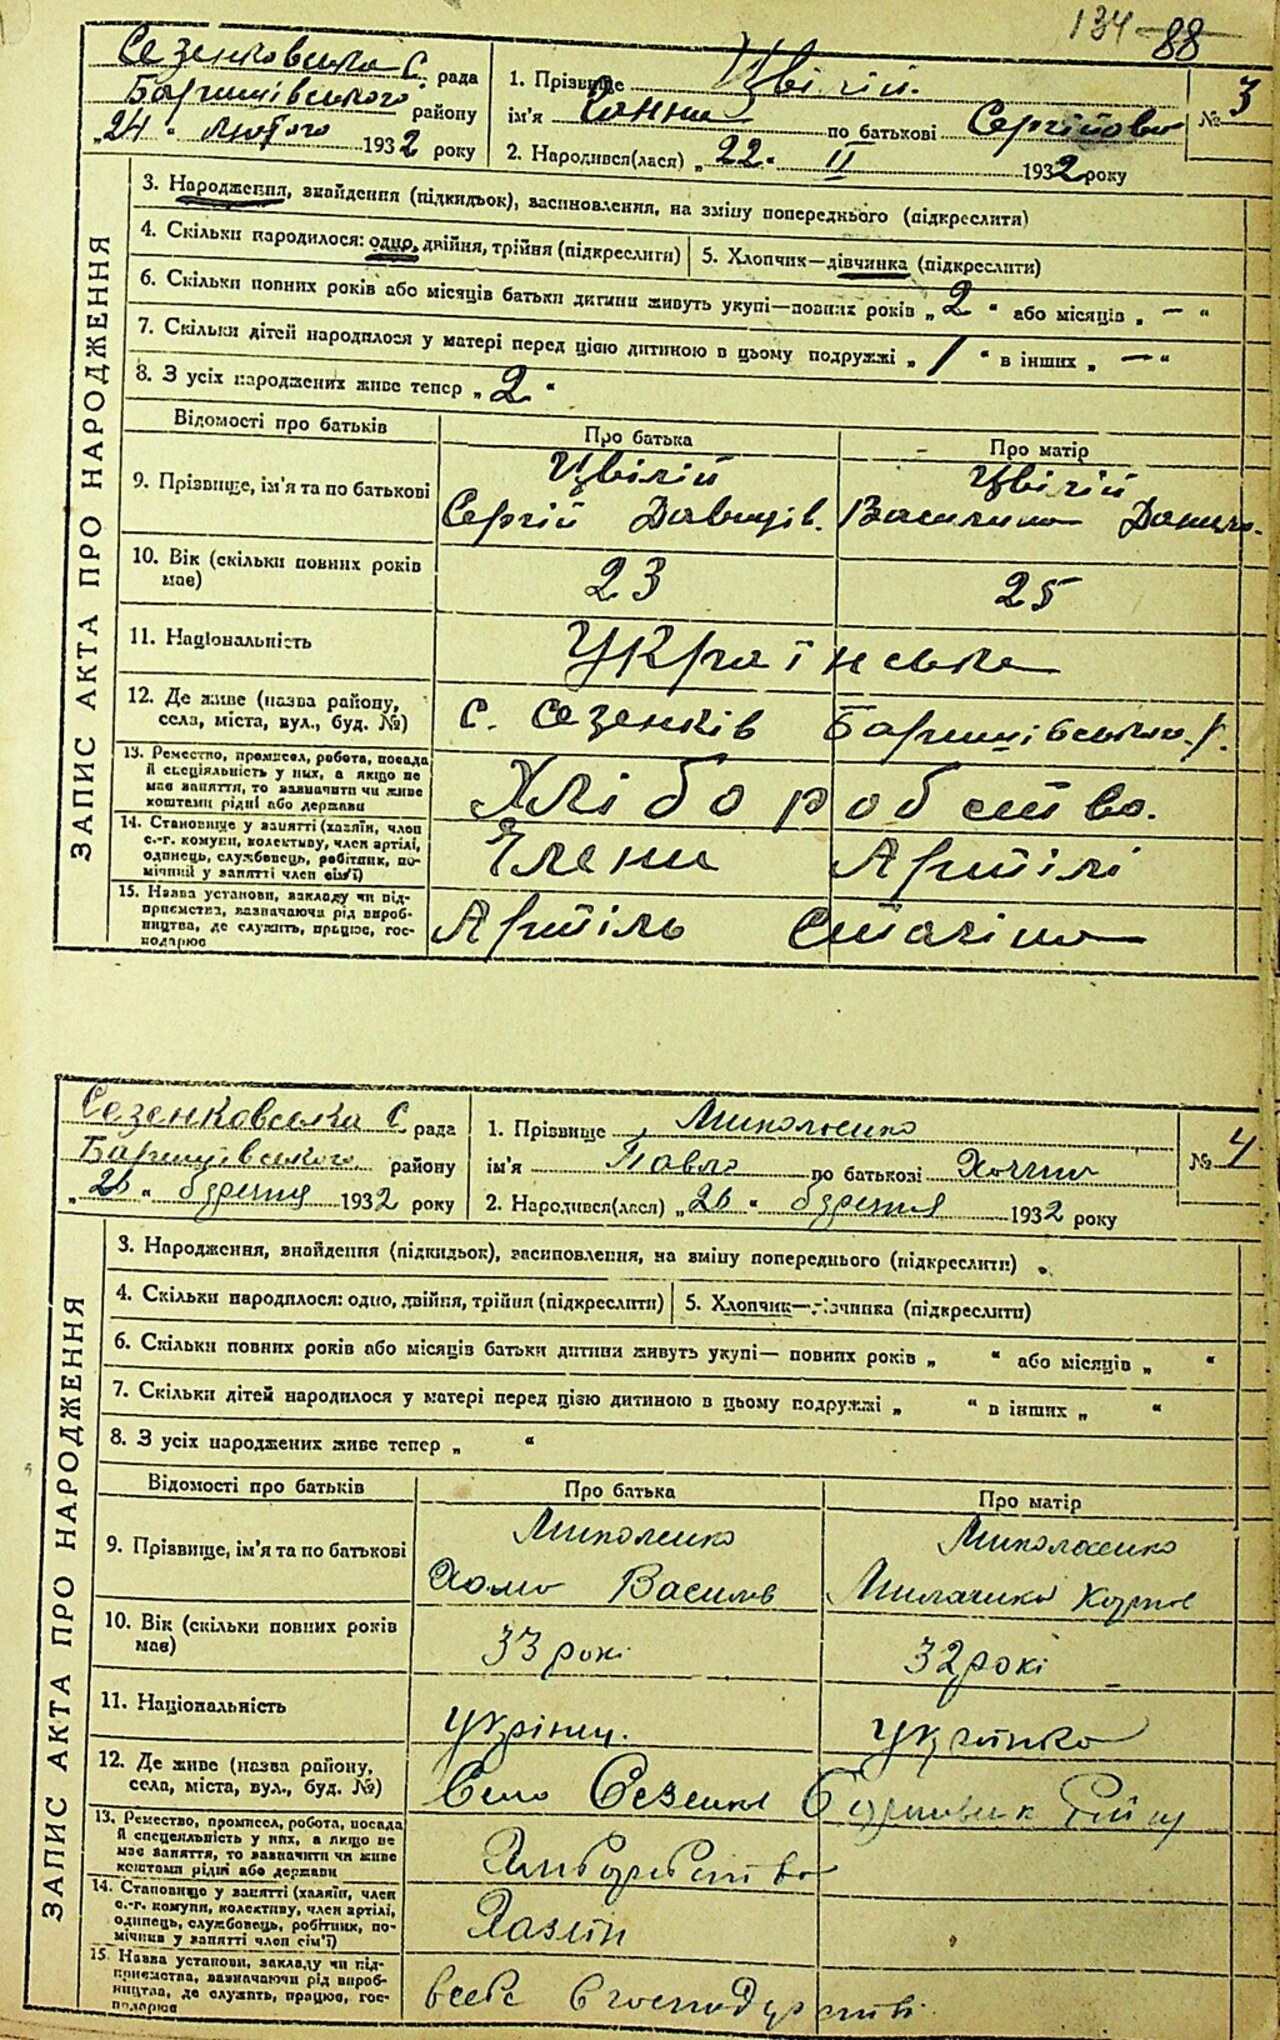 134 88
Сезенковська С. рада
Баришівського району
„24 “ лютого 1932 року
1. Прізвище Цвілій.
ім'я Ганна по батькові Сергійовна
2. Народився(лася) „ 22 “ II 1932 року
№ 3
ЗАПИС АКТА ПРО НАРОДЖЕННЯ
3. Народження, знайдення (підкидьок), засиновлення, на зміну попереднього (підкреслити)
4. Скільки народилося: одно, двійня, трійня (підкреслити)
5. Хлопчик—дівчинка (підкреслити)
6. Скільки повних років або місяців батьки дитини живуть укупі—повних років „ 2 “ або місяців „ — “
7. Скільки дітей народилося у матері перед цією дитиною в цьому подружжі „ 1 “ в інших „ — “
8. З усіх народжених живе тепер „ 2 “
Відомості про батьків
Про батька
Про матір
9. Прізвище, ім'я та по батькові
Цвілій
Сергій Давидів.
Цвілій
Василина Данило.
10. Вік (скільки повних років
має)
23
25
11. Національність
Українська
12. Де живе (назва району,
села, міста, вул., буд. №)
с. Сезенків Баришівського р.
13. Ремество, промисел, робота, посада
й спеціяльність у них, а якщо не
має заняття, то зазначити чи живе
коштами рідні або держави
Хліборобство.
14. Становище у занятті (хазяїн, член
с.-г. комуни, колективу, член артілі,
одинець, службовець, робітник, по-
мічний у занятті член сім'ї)
Члени Артілі
15. Назва установи, закладу чи під-
приємства, зазначаючи рід вироб-
ництва, де служить, працює, гос-
подарює
Артіль Сталіна
Сезенковська С. рада
Баришівського району
„ 26 “ березня 1932 року
1. Прізвище Миколаєнко
ім'я Павло по батькові Хомич
2. Народився(лася) „ 26 “ березня 1932 року
№ 4
ЗАПИС АКТА ПРО НАРОДЖЕННЯ
3. Народження, знайдення (підкидьок), засиновлення, на зміну попереднього (підкреслити)
4. Скільки народилося: одно, двійня, трійня (підкреслити)
5. Хлопчик—дівчинка (підкреслити)
6. Скільки повних років або місяців батьки дитини живуть укупі— повних років „ “ або місяців „ “
7. Скільки дітей народилося у матері перед цією дитиною в цьому подружжі „ “ в інших „ “
8. З усіх народжених живе тепер „ “
Відомості про батьків
Про батька
Про матір
9. Прізвище, ім'я та по батькові
Миколаєнко
Хома Василів
Миколаєнко
10. Вік (скільки повних років
має)
33 рокі
32 рокі
11. Національність
украінка
12. Де живе (назва району,
села, міста, вул., буд. №)
Село
13. Ремество, промисел, робота, посада
й спецеяльність у них, а якщо не
має заняття, то зазначити чи живе
коштами рідні або держави
14. Становище у занятті (хазяїн, член
с.-г. комуни, колективу, член артілі,
одинець, службовець, робітник, по-
мічний у занятті член сім'ї)
Хазяін
15. Назва установи, закладу чи під-
приємства, зазначаючи рід вироб-
ництва, де служить, працює, гос-
подарює
всебе в господарстві